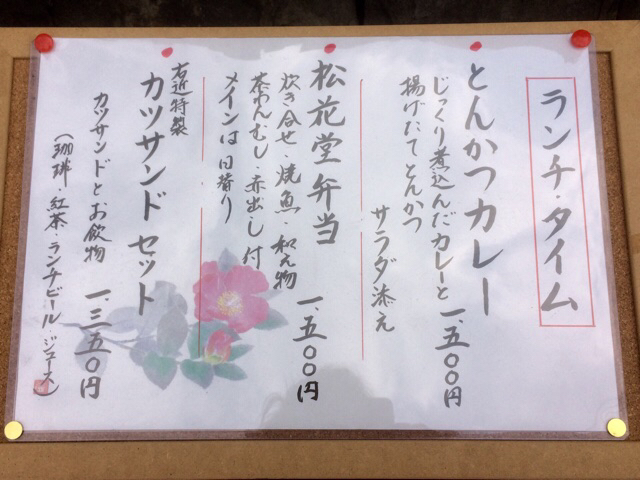 ランチ・タイム
とんかつカレー
じっくり煮込んだカレーと
揚げたてとんかつ
サラダ添え
一、五〇〇円
松花堂弁当
炊き合せ・焼魚・和え物
茶わんむし 赤出し付
メインは日替り
一、五〇〇円
右近特製
カツサンドセット
カツサンドとお飲物
一、三五〇円
(珈琲・紅茶・ランチビール ジュース)